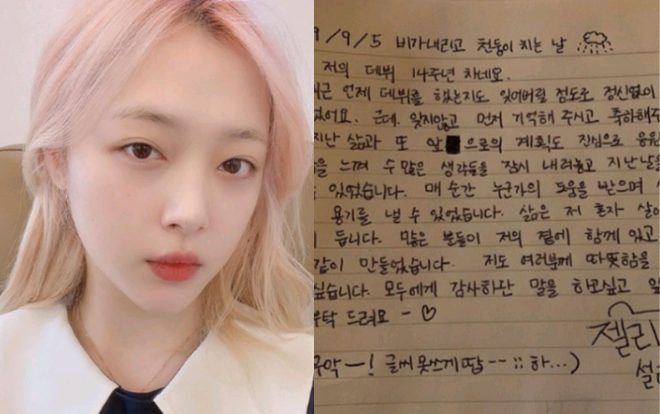 9/9/5 비가내리고 천둥이 치는 날
저의 데뷔 14주년 차네요.
언제 데뷔를 했는지도 잊어버릴 정도로 정신없이
근데, 잊지않고 먼저 기억해 주시고 축하해주
지난 삶과 또 앞으로의 계획도 진심으로 응원
을 느껴 수 많은 생각들을 잠시 내려놓고 지난날들
있었습니다. 매 순간 누군가의 도움을 받으며
용기를 낼 수 있었습니다. 삶은 저 혼자 살
듭니다. 많은 분들이 저의 곁에 함께 있고
같이 만들었습니다. 저도 여러분께 따뜻함을
싶습니다. 모두에게 감사하단 말을 하고싶고 앞
부탁 드려요 - ♡
젤리
설
꾸악 ㅡ! 글씨 못쓰게땁 -- ;; 하...)